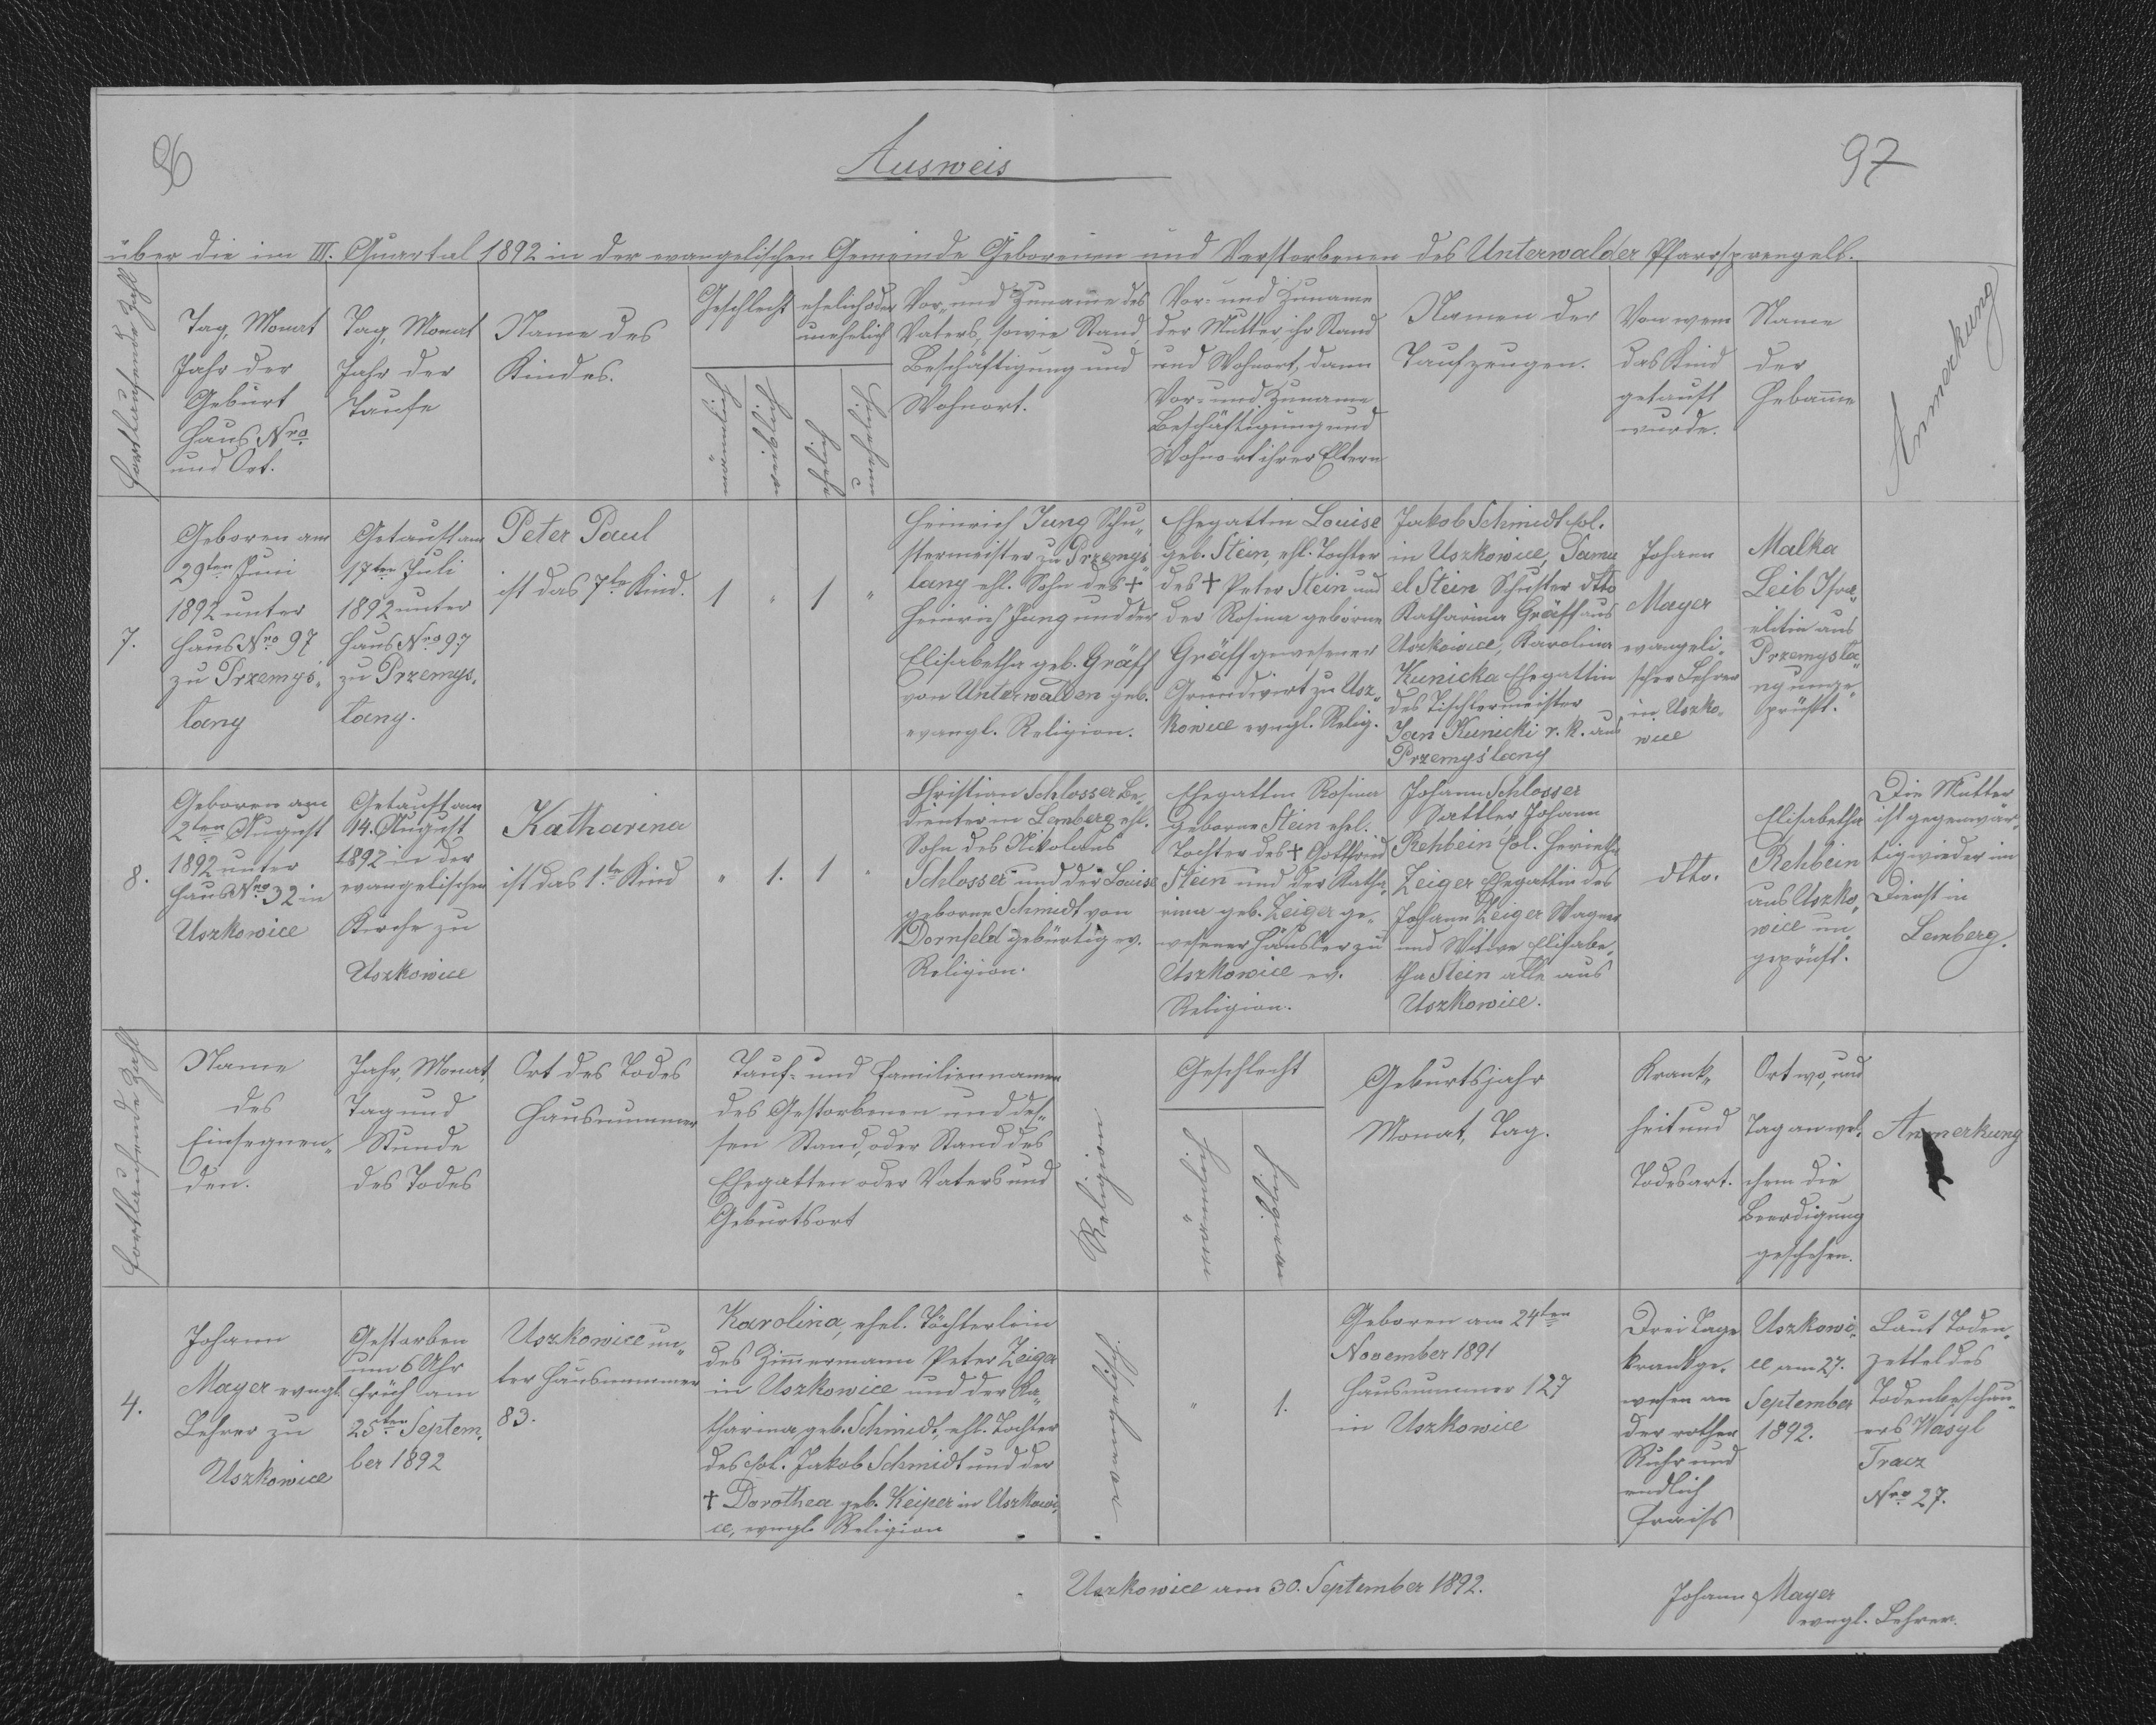 96
Ausweis
97
über die im III. Quartal 1892 in der evangelischen Gemeinde Geborenen und Verstorbenen des Unterwalder Pfarrsprengels.
Fortlaufende Zahl
Tag, Monat
Jahr der
Geburt
Haus Nro
und Ort.
Tag, Monat
Jahr der
Taufe
Name des
Kindes.
Geschlecht
männlich
weiblich
ehelich oder
unehelich
ehelich
unehelich
Vor- und Zuname des
Vaters, sowie Stand,
Beschäftigung und
Wohnort.
Vor- und Zuname
der Mutter, ihr Stand
und Wohnort, dann
Vor- und Zuname
Beschäftigung und
Wohnort ihrer Eltern
Namen der
Taufzeugen.
Von wem
das Kind
getauft
wurde.
Name
der
Hebamme
Anmerkung
7.
Geboren am
29ten Juni
1892 unter
Haus Nro 97
zu Przemyś„
lany
Getauft am
17ten Juli
1892 unter
Haus Nro 97
zu Przemys„
lany.
Peter Paul
ist das 7te Kind.
1
"
1
"
Heinrich Jung Schu„
stermeister zu Przemyś„
lany ehl. Sohn des †
Heinrich Jung und der
Elisabetha geb. Gräff
von Unterwalden geb.
evangl. Religion.
Ehegattin Louise
geb. Stein, ehl. Tochter
des † Peter Stein und
der Rosina geborne
Gräff gewesener
Grundwirt zu Usz„
kowice evngl. Relig.
Jakob Schmidt Col.
in Uszkowice, Samu
el Stein Schuster dtto
Katharina Gräff aus
Uszkowice, Karolina
Kunicka Ehegattin
des Tischlermeister
Jan Kunicki r. k. aus
Przemyślany
Johann
Mayer
evangeli„
scher Lehrer
in Uszko„
wice
Malka
Leib Isra„
elitin aus
Przemyśla„
ny unge„
prüft.
8.
Geboren am
2ten August
1892 unter
Haus Nro 32 in
Uszkowice
Getauft am
14. August
1892 in der
evangelischen
Kirche zu
Uszkowice
Katharina
ist das 1te Kind
"
1.
1
"
Christian Schlosser Be„
dienter in Lemberg ehl.
Sohn des Nikolaus
Schlosser und der Louise
geborne Schmidt von
Dornfeld gebürtig ev.
Religion.
Ehegattin Rosina
geborne Stein ehel.
Tochter des † Gottfried
Stein und der Katha„
rina geb. Zeiger ge„
wesener Häusler zu
Uszkowice ev.
Religion.
Johann Schlosser
Sattler Johann
Rehbein Col.
Zeiger Ehegattin des
Johann Zeiger Wagner
und Witwe Elisabe„
tha Stein alle aus
Uszkowice.
dtto.
Elisabetha
Rehbein
aus Uszko„
wice un„
geprüft.
Die Mutter
ist gegenwär„
tig wieder im
Dienst in
Lemberg.
Fortlaufende Zahl
Name
des
Einsegnen„
den.
Jahr, Monat,
Tag und
Stunde
des Todes
Ort des Todes
Hausnummer
Tauf- und Familiennamen
des Gestorbenen und des„
sen Stand, oder Stand des
Ehegatten oder Vaters und
Geburtsort
Religion
Geschlecht
männlich
weiblich
Geburtsjahr
Monat, Tag.
Krank„
heit und
Todesart.
Ort wo, und
Tag an wel„
chem die
Beerdigung
geschehen.
Anmerkung
4.
Johann
Mayer evngl.
Lehrer zu
Uszkowice
Gestorben
um 6 Uhr
früh am
25ten Septem„
ber 1892
Uszkowice un„
ter Hausnummer
83.
Karolina, ehel. Töchterlein
des Zimmermann Peter Zeiger
in Uszkowice und der Ka„
tharina geb. Schmidt, ehl. Tochter
des Col. Jakob Schmidt und der
† Dorothea geb. Keiper in Uszkowi„
ce, evngl. Religion
evangelisch
"
1.
Geboren am 24ten
November 1891
Hausnummer 127
in Uszkowice
Drei Tage
krank ge„
wesen an
der rothen
Ruhr und
endlich
Fraiss
Uszkowi„
ce am 27.
September
1892.
Laut Toden„
zettel des
Todenbeschau„
ers Wasyl
Tracz
Nro 27.
Uszkowice am 30. September 1892.
Johann Mayer
evngl. Lehrer.